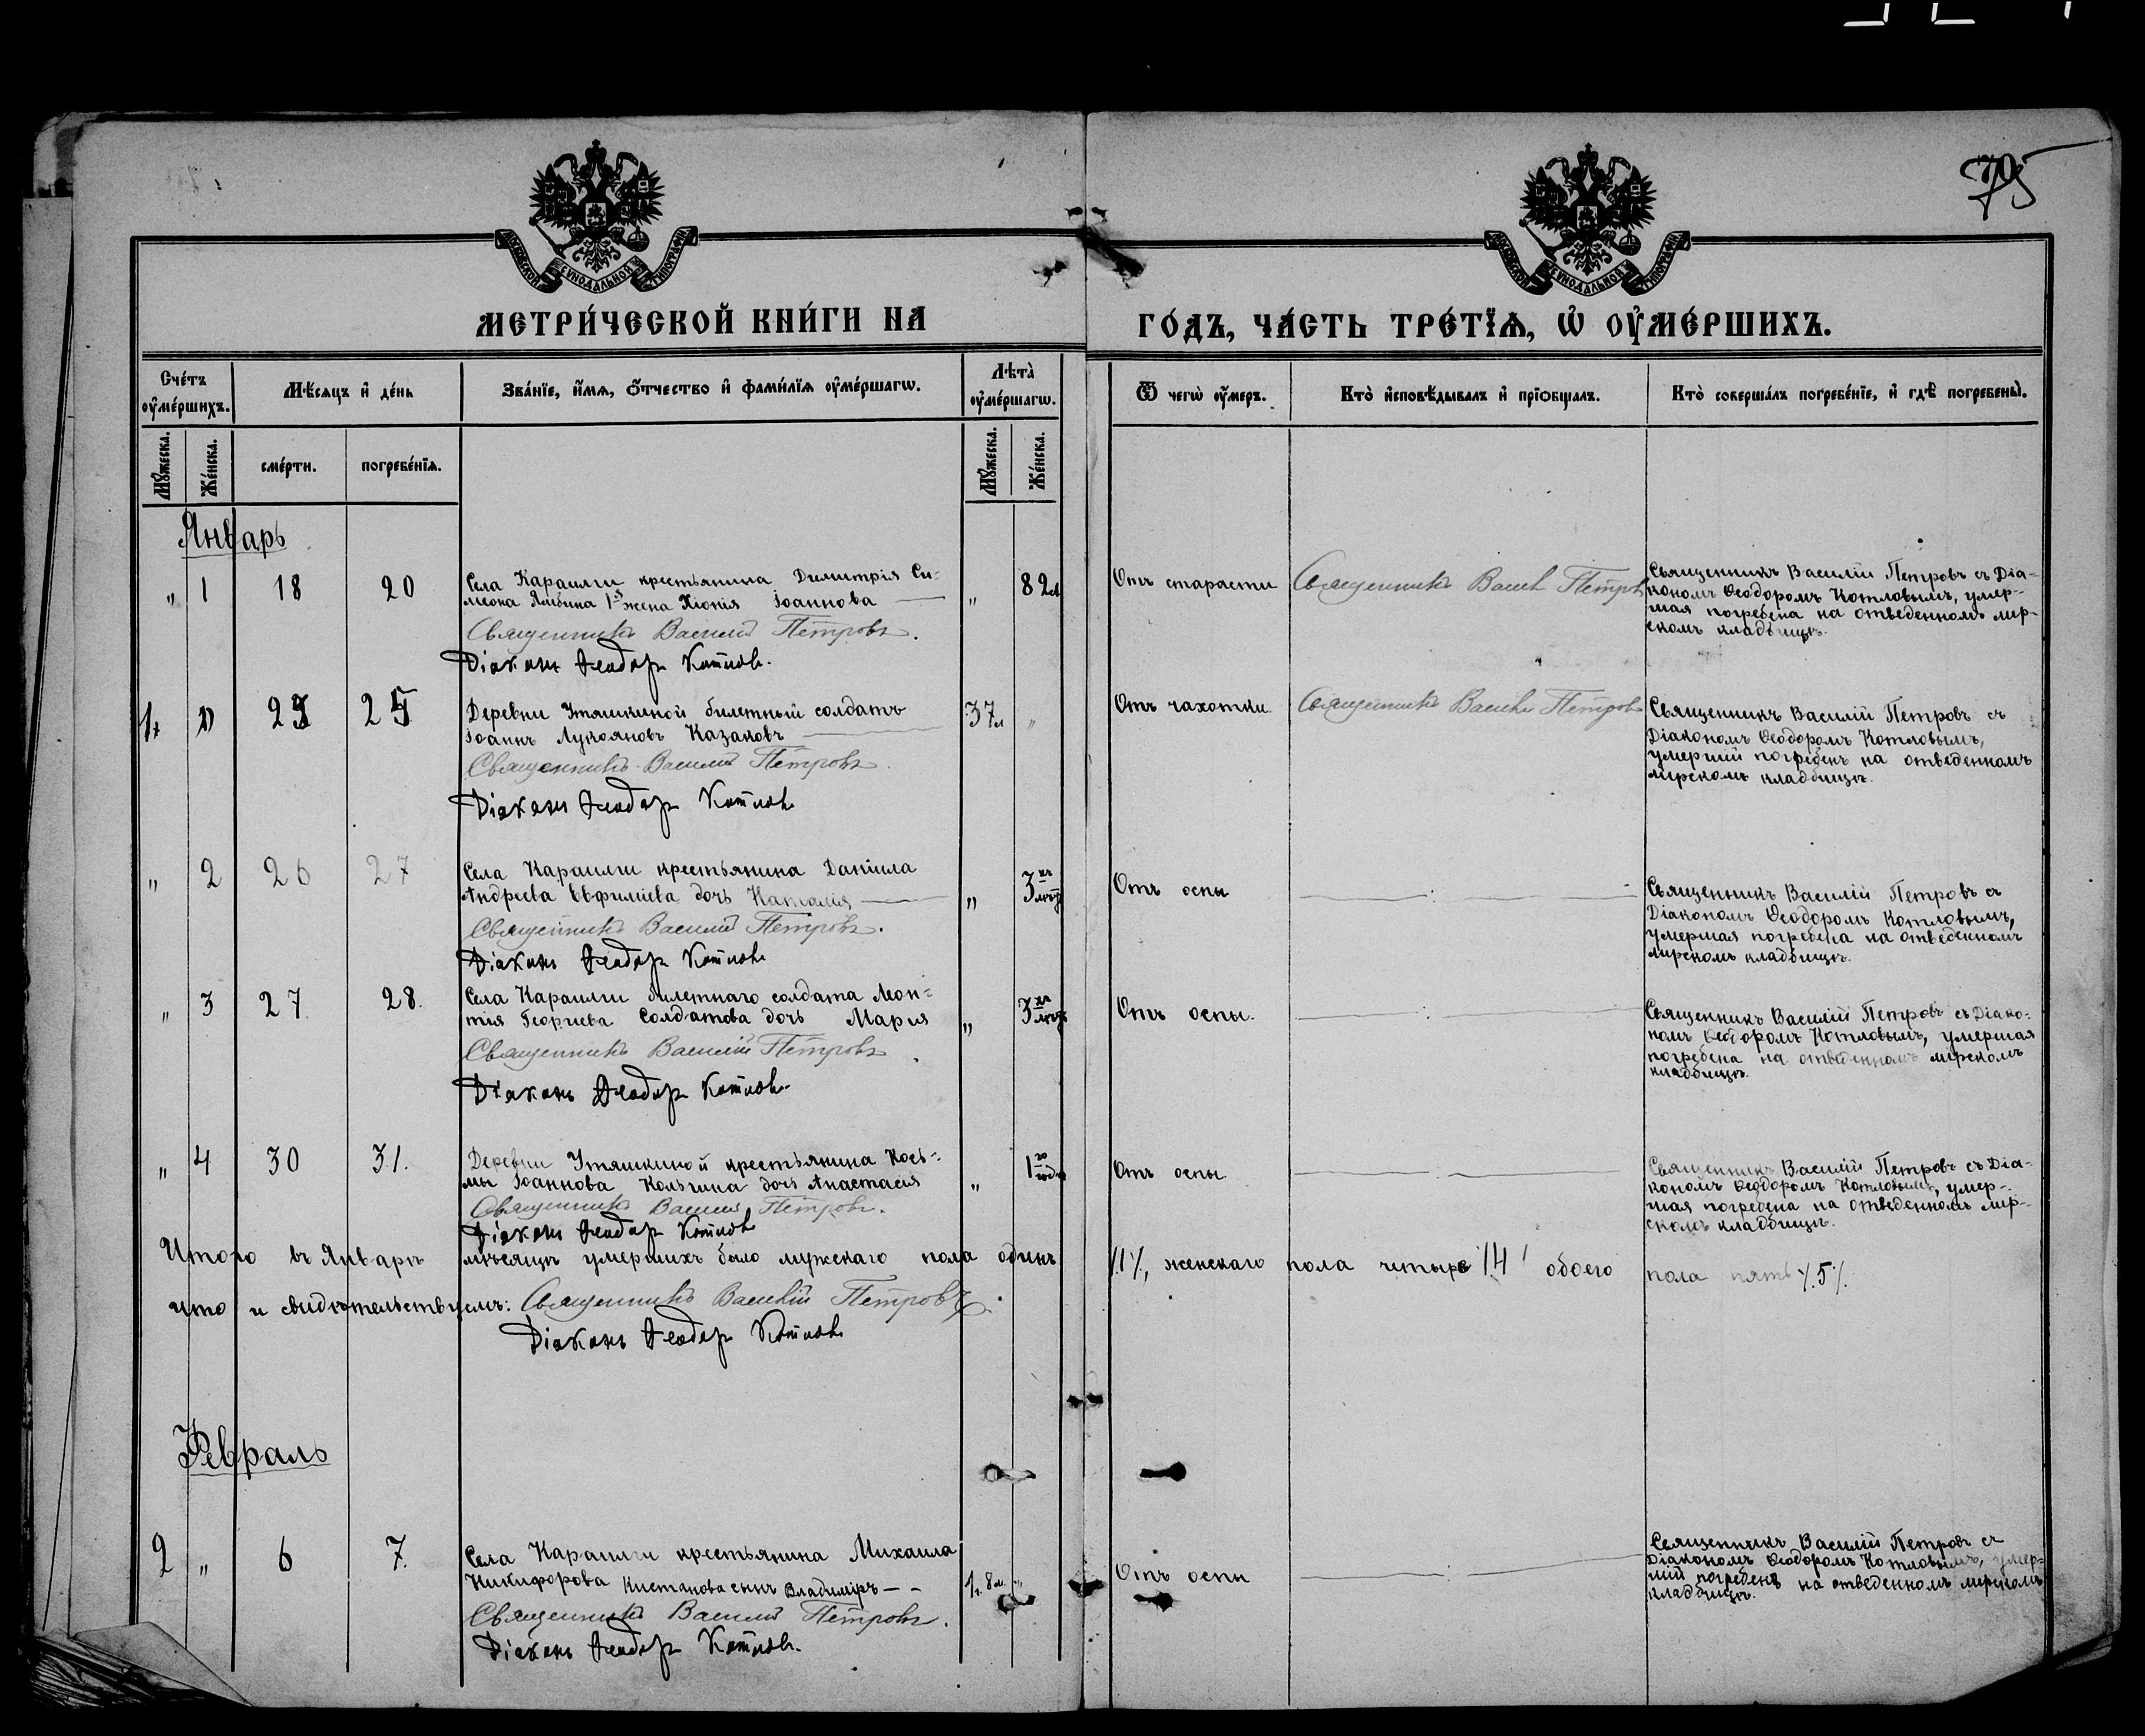 75
МОСКОВСКОЙ СУНОДАЛЬНОЙ ТИПОГРАФІИ
МОСКОВСКОЙ СУНОДАЛЬНОЙ ТИПОГРАФІИ
МЕТРИ́ЧЕСКОЙ КНИ́ГИ НА
ГО́ДЪ, ЧА́СТЬ ТРЕ́ТЇѦ, Ѡ҆ ОУ҆МЕ́РШИХЪ.
Сче́тъ оу҆ме́ршихъ.
Мѣ́сѧцъ и҆ де́нь
Зва́нїе, и҆́мѧ, ѻ҆́тчество и҆ фами́лїѧ оу҆ме́ршагѡ.
Лѣта̀ оу҆ме́ршагѡ.
Ѿ чегѡ̀ оу҆́меръ.
Кто̀ и҆сповѣ́дывалъ и҆ прїѡбща́лъ.
Кто̀ соверша́лъ погребе́нїе, и҆ гдѣ̀ погребены̀.
Мꙋ́жеска.
Же́нска.
сме́рти.
погребе́нїѧ.
Мꙋ́жеска.
Же́нска.
Январь
„ 1 18 20
Села Караилги крестьянина Димитрія Си-
меона Ямбина 1ª жена Хіонія Іоаннова
Священникъ Василій Петровъ.
Діаконъ Ѳеодоръ Котловъ.
„ 82л
Отъ старасти
Священникъ Василій Петровъ
Священникъ Василій Петровъ съ Діа-
кономъ Ѳеодоромъ Котловымъ, умер-
шая погребена на отведенномъ мир-
скомъ кладбищѣ.
1 „ 25
Деревни Утяшкиной билетный солдатъ
Іоаннъ Лукояновъ Казаковъ
Священникъ Василій Петровъ.
Діаконъ Ѳеодоръ Котловъ
37л „
Отъ чахотки.
Священникъ Василій Петровъ
Священникъ Василій Петровъ съ
Діакономъ Ѳеодоромъ Котловымъ,
умершій погребенъ на отведенномъ
мирскомъ кладбищѣ.
„ 2 26 27
Села Караилги крестьянина Даніила
Андреева Евфиміева дочь Наталія
Священникъ Василій Петровъ.
Діаконъ Ѳеодоръ Котловъ
„ 3хъ лѣтъ
Отъ оспы
Священникъ Василій Петровъ съ
Діакономъ Ѳеодоромъ Котловымъ,
умершая погребена на отведенномъ
мирскомъ кладбищѣ.
„ 3 27 28.
Села Караилги билетнаго солдата Леон-
тія Георгіева Солдатова дочь Марія
Священникъ Василій Петровъ
Діаконъ Ѳеодоръ Котловъ
„ 3хъ лѣтъ
Отъ оспы.
Священникъ Василій Петровъ съ Діако-
номъ Ѳеодоромъ Котловымъ, умершая
погребена на отведенномъ мирскомъ
кладбищѣ.
„ 4 30 31.
Деревни Утяшкиной крестьянина Кось-
мы Іоаннова Кольгина дочь Анастасія
Священникъ Василій Петровъ.
Діаконъ Ѳеодоръ Котловъ
„ 1го года
Отъ оспы
Священникъ Василій Петровъ съ Діа-
кономъ Ѳеодоромъ Котловымъ, умер-
шая погребена на отведенномъ мир-
скомъ кладбищѣ.
Итого въ Январѣ мѣсяцѣ умершихъ было мужскаго пола одинъ /.1/., женскаго пола четыре /4/ обоего пола пять /.5/.
что и свидѣтельствуемъ: Священникъ Василій Петровъ.
Діаконъ Ѳеодоръ Котловъ
Февраль
2 „ 6 7.
Села Караилги крестьянина Михаила
Никифорова Кистанова сынъ Владиміръ
Священникъ Василій Петровъ.
Діаконъ Ѳеодоръ Котловъ.
1г. 8м. „
Отъ оспы
Священникъ Василій Петровъ съ
Діакономъ Ѳеодоромъ Котловымъ, умер-
шій погребенъ на отведенномъ мирскомъ
кладбищѣ.